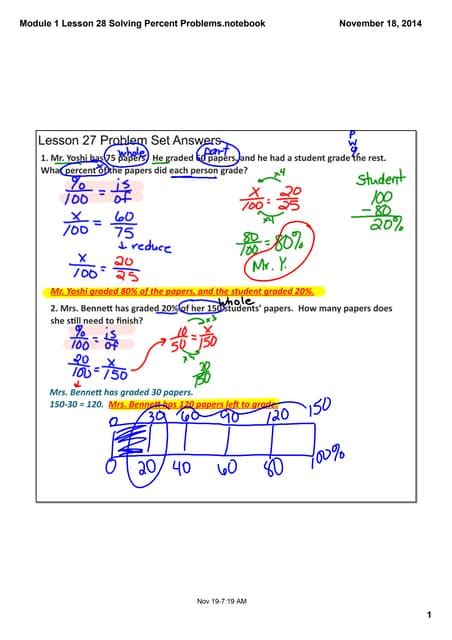 Module 1 Lesson 28 Solving Percent Problems.notebook
November 18, 2014
Lesson 27 Problem Set Answers
P
w
whole
part
1. Mr. Yoshi has 75 papers. He graded 60 papers, and he had a student grade the rest.
What percent of the papers did each person grade?
x
%/100 = is/of
x/100 = 60/75
↓ reduce
x/100 = 20/25
x4
x/100 = 20/25
x4
80/100 = 80%
Mr. Y.
Student
100
- 80
20%
Mr. Yoshi graded 80% of the papers, and the student graded 20%.
whole
2. Mrs. Bennett has graded 20% of her 150 students' papers. How many papers does
she still need to finish?
%/100 = is/of
20/100 = x/150
x3
10/50 = x/150
x3
30/150
Mrs. Bennett has graded 30 papers.
150-30 = 120. Mrs. Bennett has 120 papers left to grade.
0 30 60 90 120 150
0 20 40 60 80 100%
Nov 19-7:19 AM
1